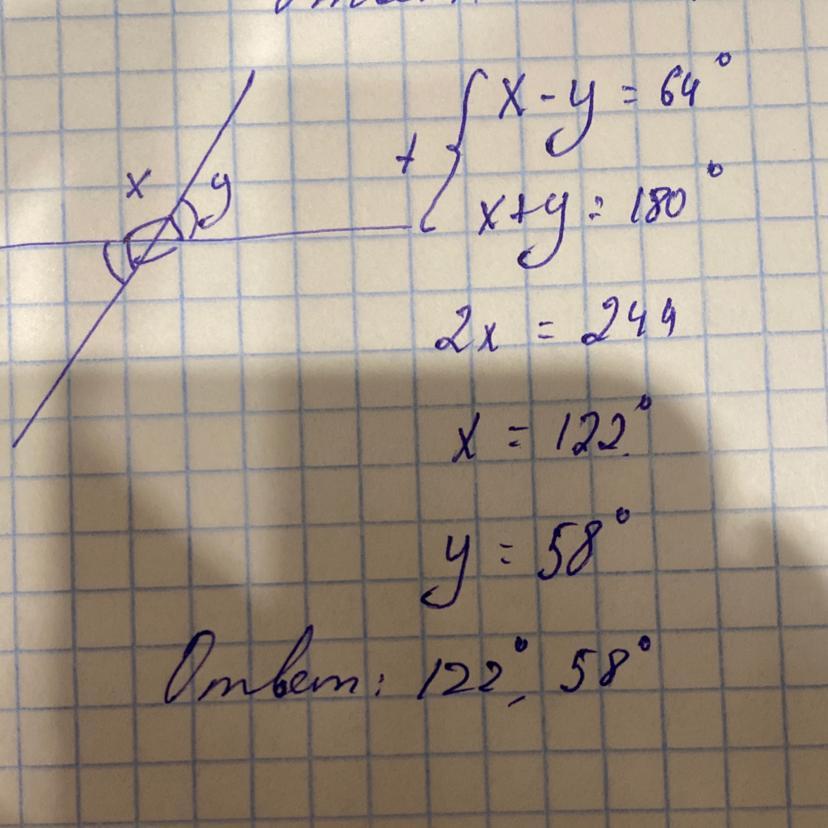 x - y = 64°
x y
+
x+y = 180°
2x = 244
x = 122°
y = 58°
Ответ: 122°, 58°